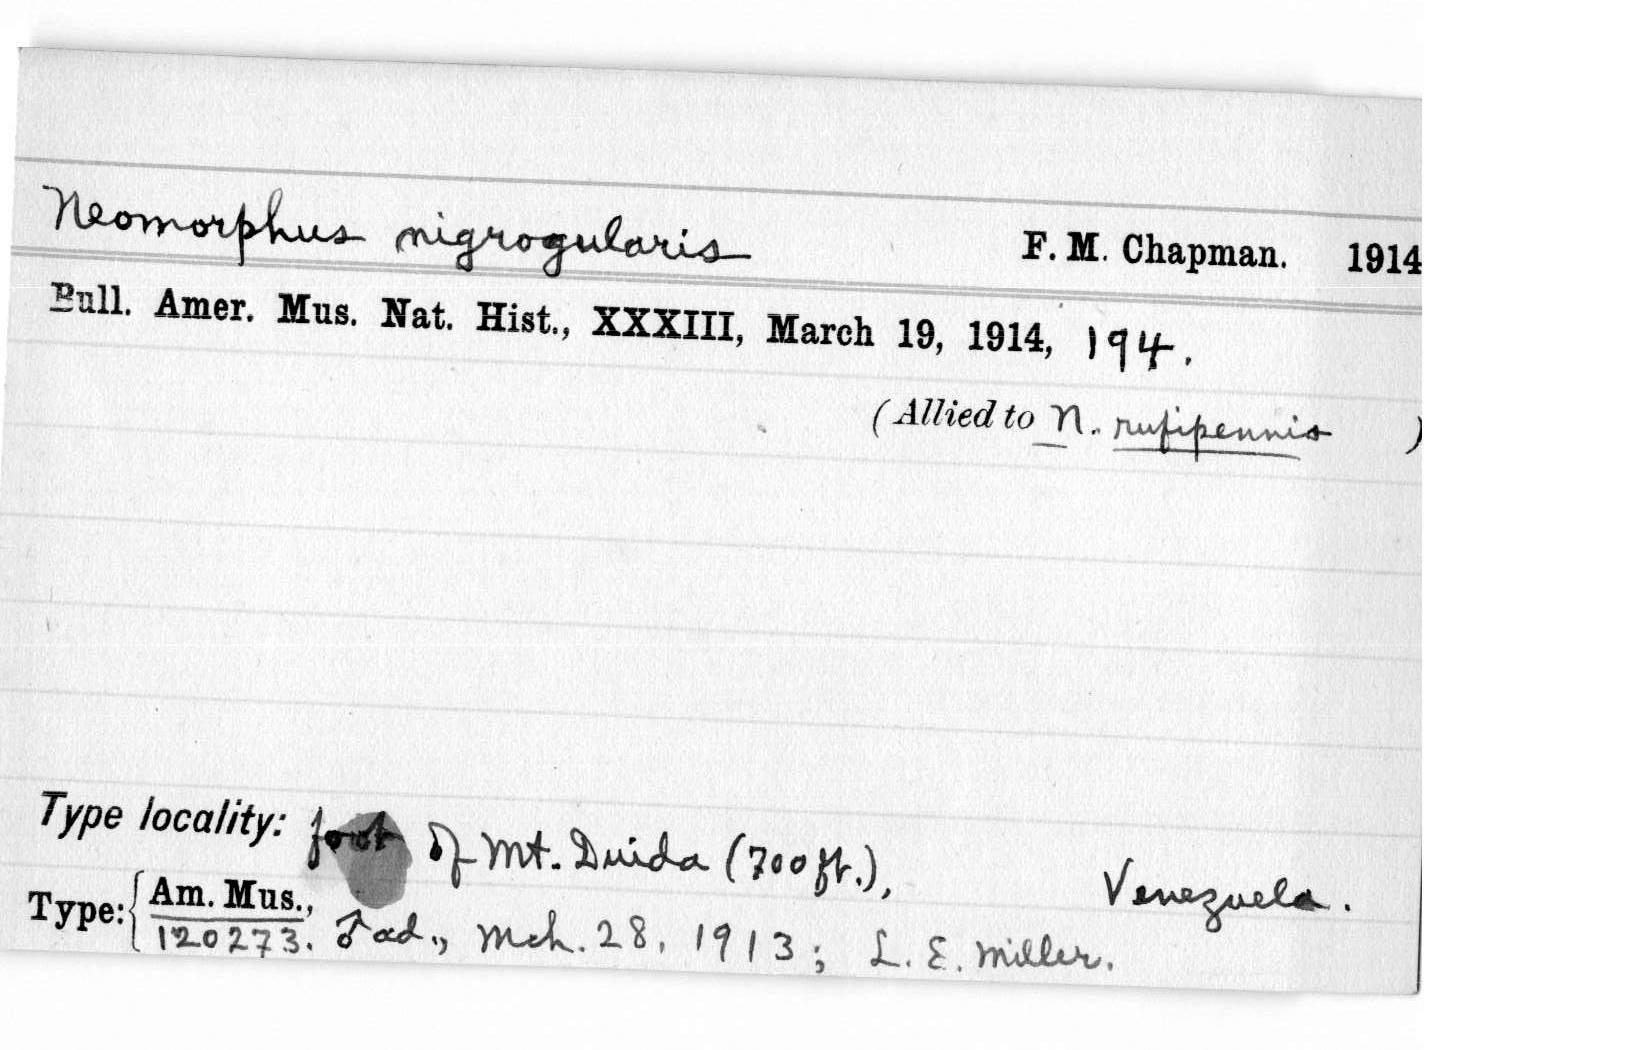 Neomorphus nigrogularis F. M. Chapman. 1914
Bull. Amer. Mus. Nat. Hist., XXXIII, March 19, 1914, 194.
(Allied to N. rufipennis )
Type locality: foot of Mt. Duida (700 ft.), Venezuela.
Type: { Am. Mus.,
120273. ♂ ad., Mch. 28, 1913; L. E. Miller.